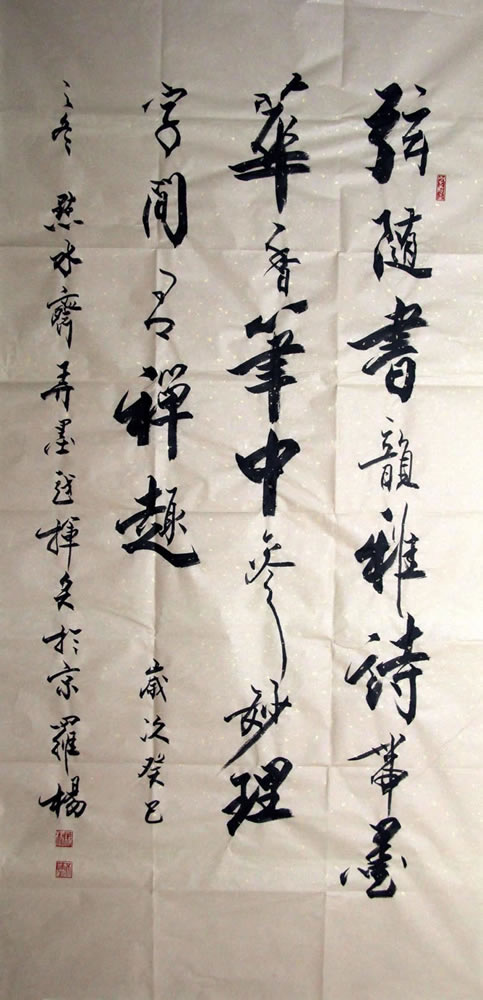 弦隨書韻雅詩帶墨
華香筆中參妙理
字間禪趣 歲次癸巳
之冬 點水齋弄墨揮於京 羅楊